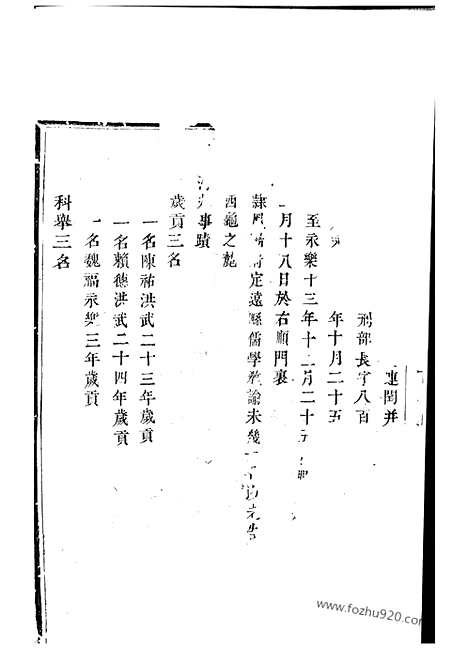 連閏并
刑部長字八百
年十月二十五
至永樂十三年十二月二十五
月十八日於右順門裏
定遠縣儒學教諭未幾
西龜之麓
事蹟
歲貢三名
一名陳祐洪武二十三年歲貢
一名賴德洪武二十四年歲貢
一名魏福永樂三年歲貢
科舉三名
www.fozhu920.com